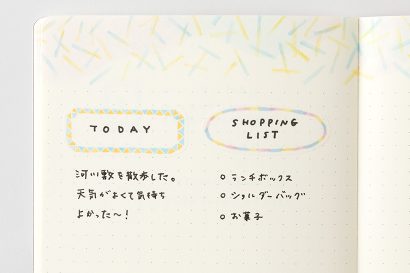 TODAY
河川敷を散歩した。
天気がよくて気持ち
よかった〜!
SHOPPING
LIST
○ ランチボックス
○ ショルダーバッグ
○ お菓子